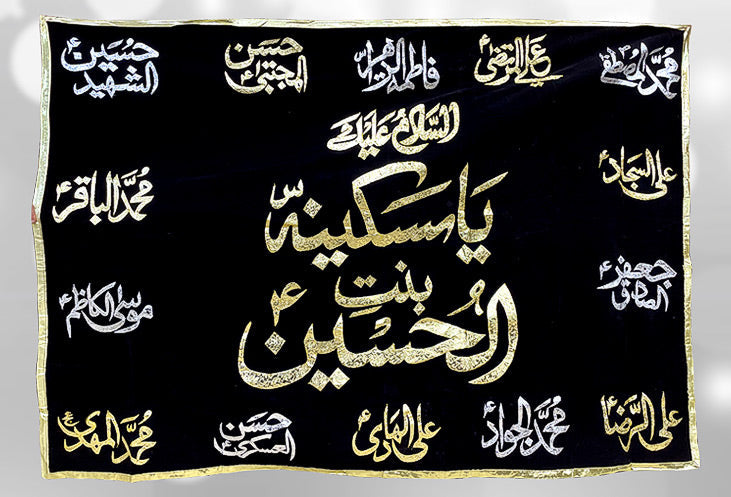 محمد المصطفیٰ ؐ
علی المرتضیٰ ؑ
فاطمة الزهرا
حسن المجتبیٰ ؑ
حسین الشهید ؑ
السلام علیک
علی السجاد ؑ
محمد الباقر ؑ
یا سکینه س
بنتِ
الحسین ؑ
جعفر الصادق ؑ
موسی الکاظم ؑ
علی الرضا ؑ
محمد الجواد ؑ
علی الهادی ؑ
حسن العسکری ؑ
محمد المهدی عج